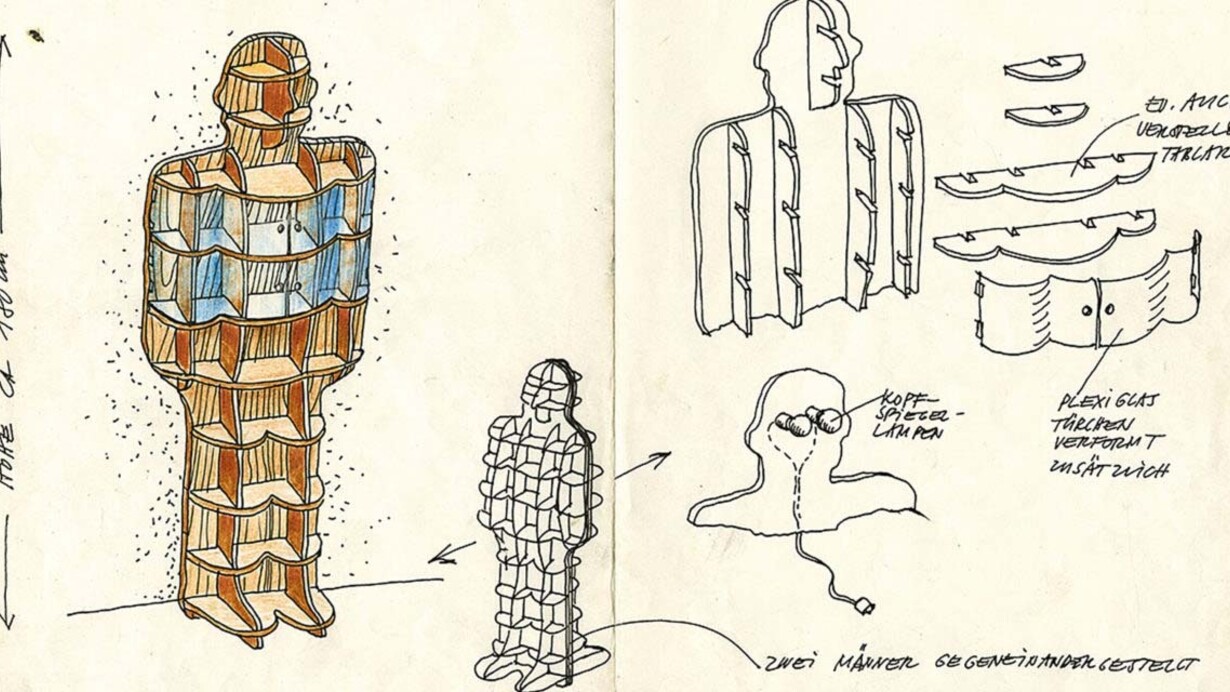 HÖHE CA 180 cm
EV. AUC
VERSTELL
TABLAR
KOPF-
SPIEGEL-
LAMPEN
PLEXIGLAS
TÜRCHEN
VERFORMT
ZUSÄTZLICH
ZWEI MÄNNER GEGENEINANDERGESTELLT